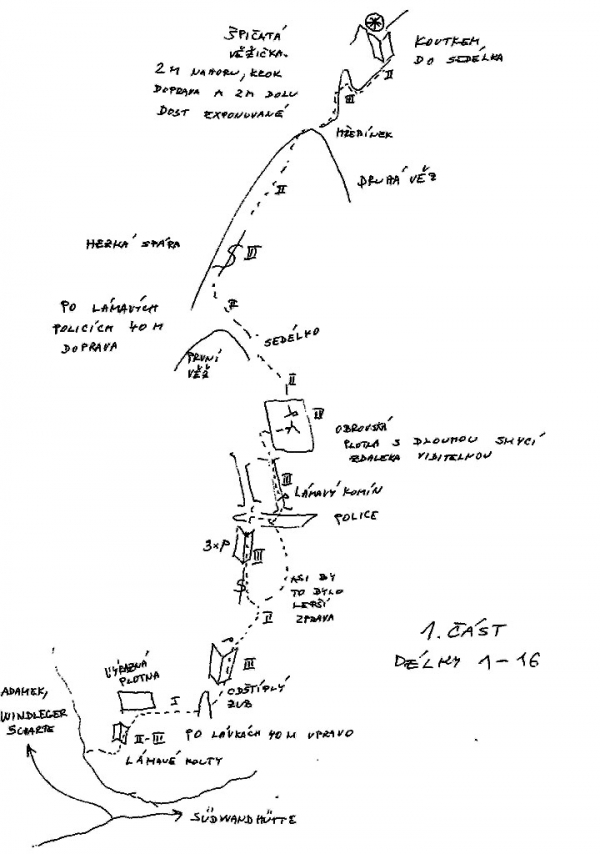 ŠPIČATÁ
VĚŽIČKA.
2 M NAHORU, KROK
DOPRAVA A 2M DOLU
DOST EXPONOVANÉ
KOUTKEM
DO SEDÉLKA
II
III
HŘEBÍNEK
DRUHÁ VĚŽ
II
HEZKÁ SPÁRA
III
II
PO LÁMAVÝCH
POLICÍCH 40 M
DOPRAVA
SEDÉLKO
PRVNÍ
VĚŽ
II
III
OBROVSKÁ
PLOTNA S DLOUHOU SMYCÍ
ZDALEKA VIDITELNOU
III
LÁMAVÝ KOMÍN
POLICE
3xP
III
ASI BY
TO BYLO
LEPŠÍ
ZPRAVA
II
1. ČÁST
DÉLKY 1-16
III
VÝRAZNÁ
PLOTNA
I
ODŠTÍPLÝ
ZUB
ADAMEK,
WINDLEGER
SCHARTE
II-III
PO LÁVKÁCH 40M VPRAVO
LÁMAVÉ KOUTY
SÜDWANDHÜTTE